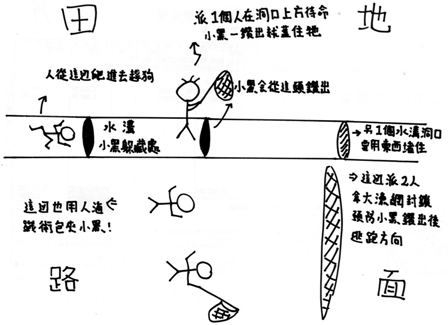 田
地
派1個人在洞口上方待命
小黑一鑽出就蓋住牠
人從這邊爬進去趕狗
小黑會從這頭鑽出
水溝
小黑躲藏處
→另1個水溝洞口
要用東西擋住
這边也用人海
戰術包夾小黑!
⇒這边派2人
拿大漁網封鎖
預防小黑鑽出後
逃跑方向
路
面